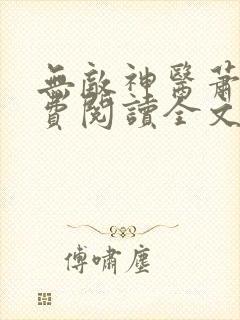 無敵神醫蕭
費閱讀全文
傅嘯塵